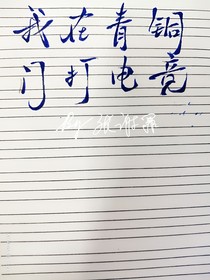 我在青铜
门打电竞
By